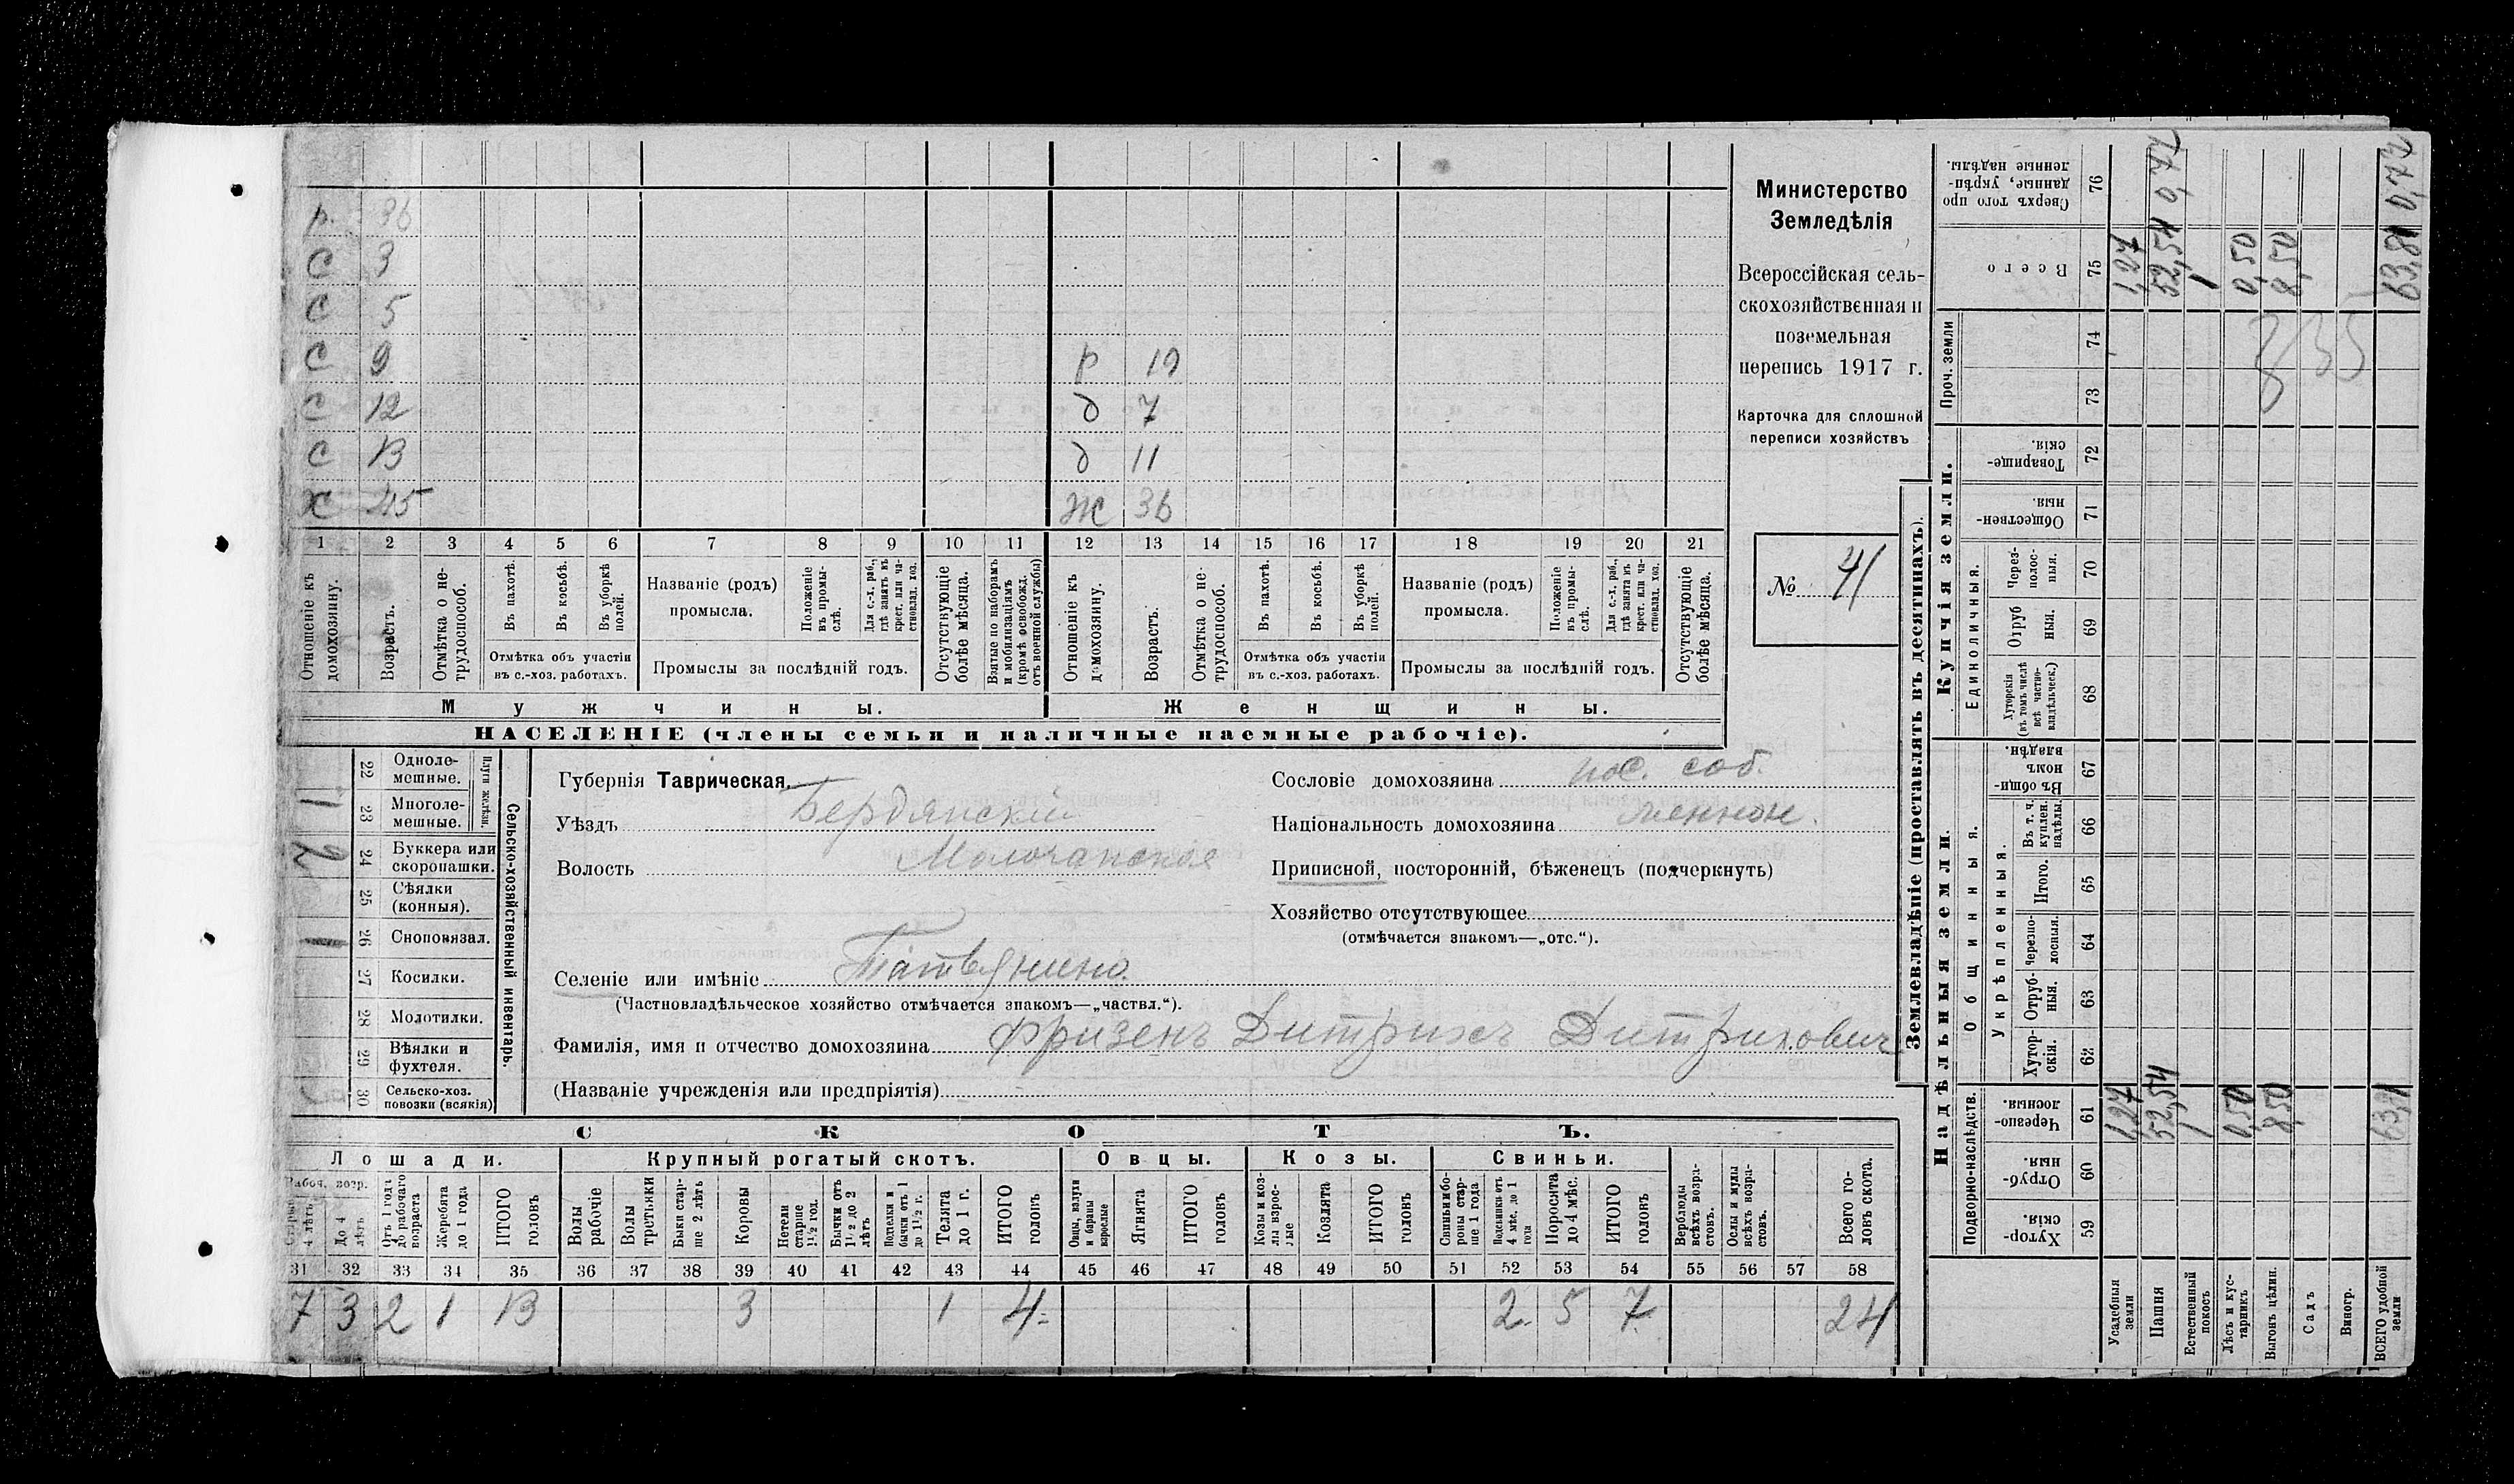 Министерство
Земледѣлія
Всероссійская сель-
скохозяйственная и
поземельная
перепись 1917 г.
Карточка для сплошной
переписи хозяйствъ
№ 41
р. 36
С 3
С 5
С 9 р 19
С 12 д 7
С 13 д 11
Х 45 Ж 36
1 2 3 4 5 6 7 8 9 10 11 12 13 14 15 16 17 18 19 20 21
Отношеніе къ домохозяину.
Возрастъ.
Отмѣтка о не-трудоспособ.
Въ пахотѣ.
Въ косьбѣ.
Въ уборкѣ полей.
Отмѣтка объ участіи въ с.-хоз. работахъ.
Названіе (родъ) промысла.
Положеніе въ промы-слѣ.
Для с.-х. раб., гдѣ занятъ въ крест. или ча-стновлад. хоз.
Промыслы за послѣдній годъ.
Отсутствующіе болѣе мѣсяца.
Взятые по наборамъ и мобилизаціямъ (кромѣ освобожд. отъ военной службы)
Отношеніе къ домохозяину.
Возрастъ.
Отмѣтка о не-трудоспособ.
Въ пахотѣ.
Въ косьбѣ.
Въ уборкѣ полей.
Отмѣтка объ участіи въ с.-хоз. работахъ.
Названіе (родъ) промысла.
Положеніе въ промы-слѣ.
Для с.-х. раб., гдѣ занята въ крест. или ча-стновлад. хоз.
Промыслы за послѣдній годъ.
Отсутствующіе болѣе мѣсяца.
Мужчины. Женщины.
НАСЕЛЕНІЕ (члены семьи и наличные наемные рабочіе).
Сельско-хозяйственный инвентарь.
Плуги желѣзн.
22 Одноле-мешные.
23 Многоле-мешные. 1
24 Буккера или скоропашки. 2
25 Сѣялки (конныя).
26 Сноповязал. 1
27 Косилки.
28 Молотилки.
29 Вѣялки и фухтеля.
30 Сельско-хоз. повозки (всякія)
Губернія Таврическая
Уѣздъ Бердянскій
Волость Молочанская
Селеніе или имѣніе
(Частновладѣльческое хозяйство отмѣчается знакомъ—„частвл.“).
Фамилія, имя и отчество домохозяина Фризенъ Дитрихъ Дитрихович
(Названіе учрежденія или предпріятія)
Сословіе домохозяина пос. соб.
Національность домохозяина
Приписной, посторонній, бѣженецъ (подчеркнуть)
Хозяйство отсутствующее
(отмѣчается знакомъ—„отс.“).
СКОТЪ.
Лошади. Крупный рогатый скотъ. Овцы. Козы. Свиньи.
Рабоч. возр.
Старше 4 лѣтъ
До 4 лѣтъ
Отъ 1 года до рабочаго возраста
Жеребята до 1 года
ИТОГО головъ
Волы рабочіе
Волы третьяки
Быки стар-ше 2 лѣтъ
Коровы
Нетели старше 1½ год.
Бычки отъ 1½ до 2 лѣтъ
Телята до 1 г.
ИТОГО головъ
Овцы, валухи и бараны взрослые
Ягнята
ИТОГО головъ
Козы и коз-лы взрос-лые
Козлята
ИТОГО головъ
Свиньи и бо-ровы стар-ше 1 года
Подсвинки отъ 4 мѣс. до 1 года
Поросята до 4 мѣс.
ИТОГО головъ
Верблюды всѣхъ возра-стовъ.
Ослы и мулы всѣхъ возра-стовъ.
Всего го-ловъ скота.
31 32 33 34 35 36 37 38 39 40 41 42 43 44 45 46 47 48 49 50 51 52 53 54 55 56 57 58
7 3 2 1 13 3 1 4 2 5 7 24
Землевладѣніе (проставлять въ десятинахъ).
Надѣльныя земли.
Купчія земли.
Проч. земли
Подворно-наслѣдств.
Общинныя.
Укрѣпленныя.
Единоличныя.
Хутор-скія. 59
Отруб-ныя. 60
Черезпо-лосныя. 61
Хутор-скія. 62
Отруб-ныя. 63
Черезпо-лосныя. 64
Итого. 65
Въ т. ч. куплен. надѣлы. 66
Въ общи-номъ владѣн. 67
Хуторскія (въ томъ числѣ всѣ частно-владѣльческ.) 68
Отруб ныя. 69
Через-полос-ныя. 70
Обществен-ныя. 71
Товарище-скія. 72
73
74
Всего 75
Сверхъ того про данные, укрѣп-ленные надѣлы. 76
Усадебныя земли 1,27 1,27
Пашня 52,54 52,54 0,77
Естественный покосъ 1 1
Лѣсъ и кус-тарникъ 0,50 0,50
Выгонъ цѣлин. 8,50 8,50
Садъ
Виногр.
ВСЕГО удобной земли 63,81 63,81 0,77